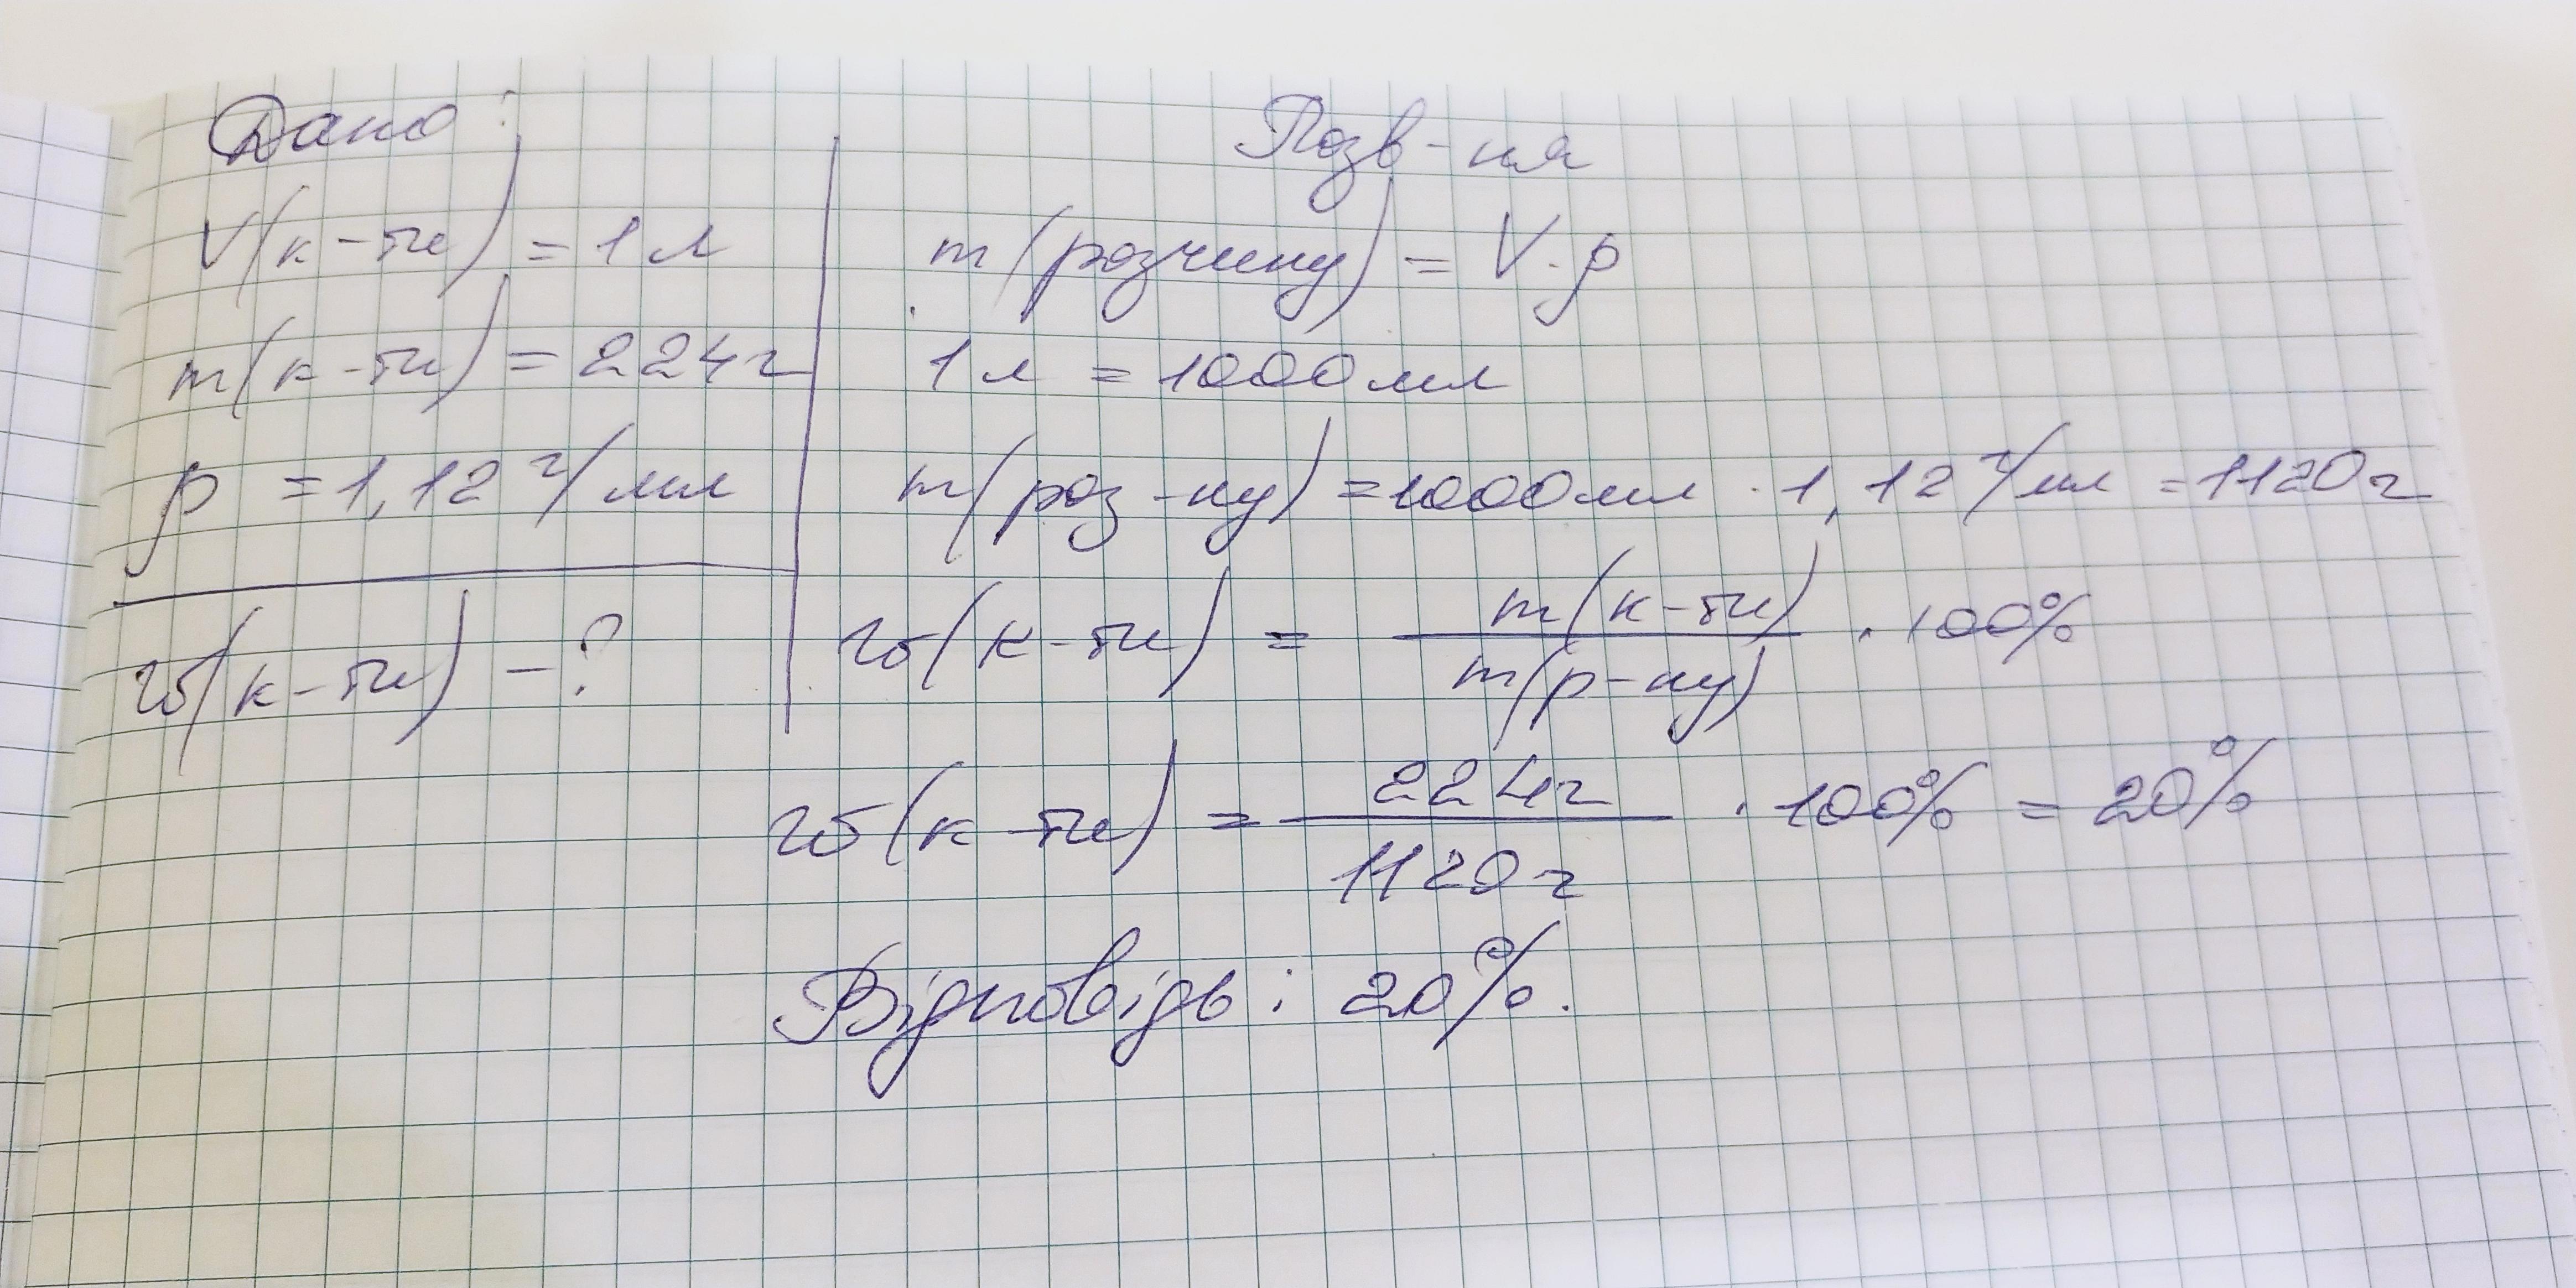 Дано:
V(к-ти) = 1 л
m(к-ти) = 224 г
ρ = 1,12 г/мл
w(к-ти) - ?
Розв-ня
m(розчину) = V · ρ
1 л = 1000 мл
m(роз-ну) = 1000 мл · 1,12 г/мл = 1120 г
w(к-ти) = m(к-ти) / m(р-ну) · 100%
w(к-ти) = 224 г / 1120 г · 100% = 20%
Відповідь: 20%.